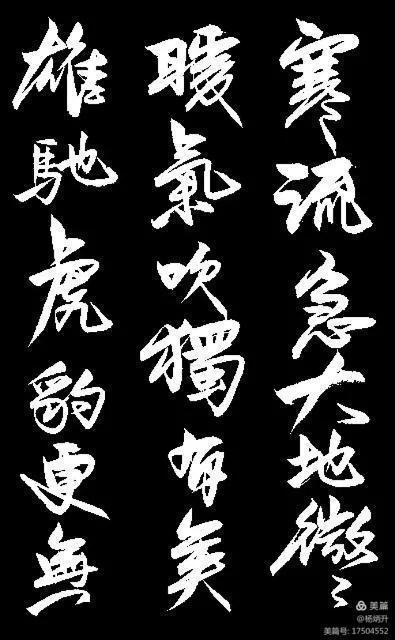 寒流急大地微〻
暖氣吹獨有英
雄馳虎豹更無
美篇
@杨炳升
美篇号: 17504552